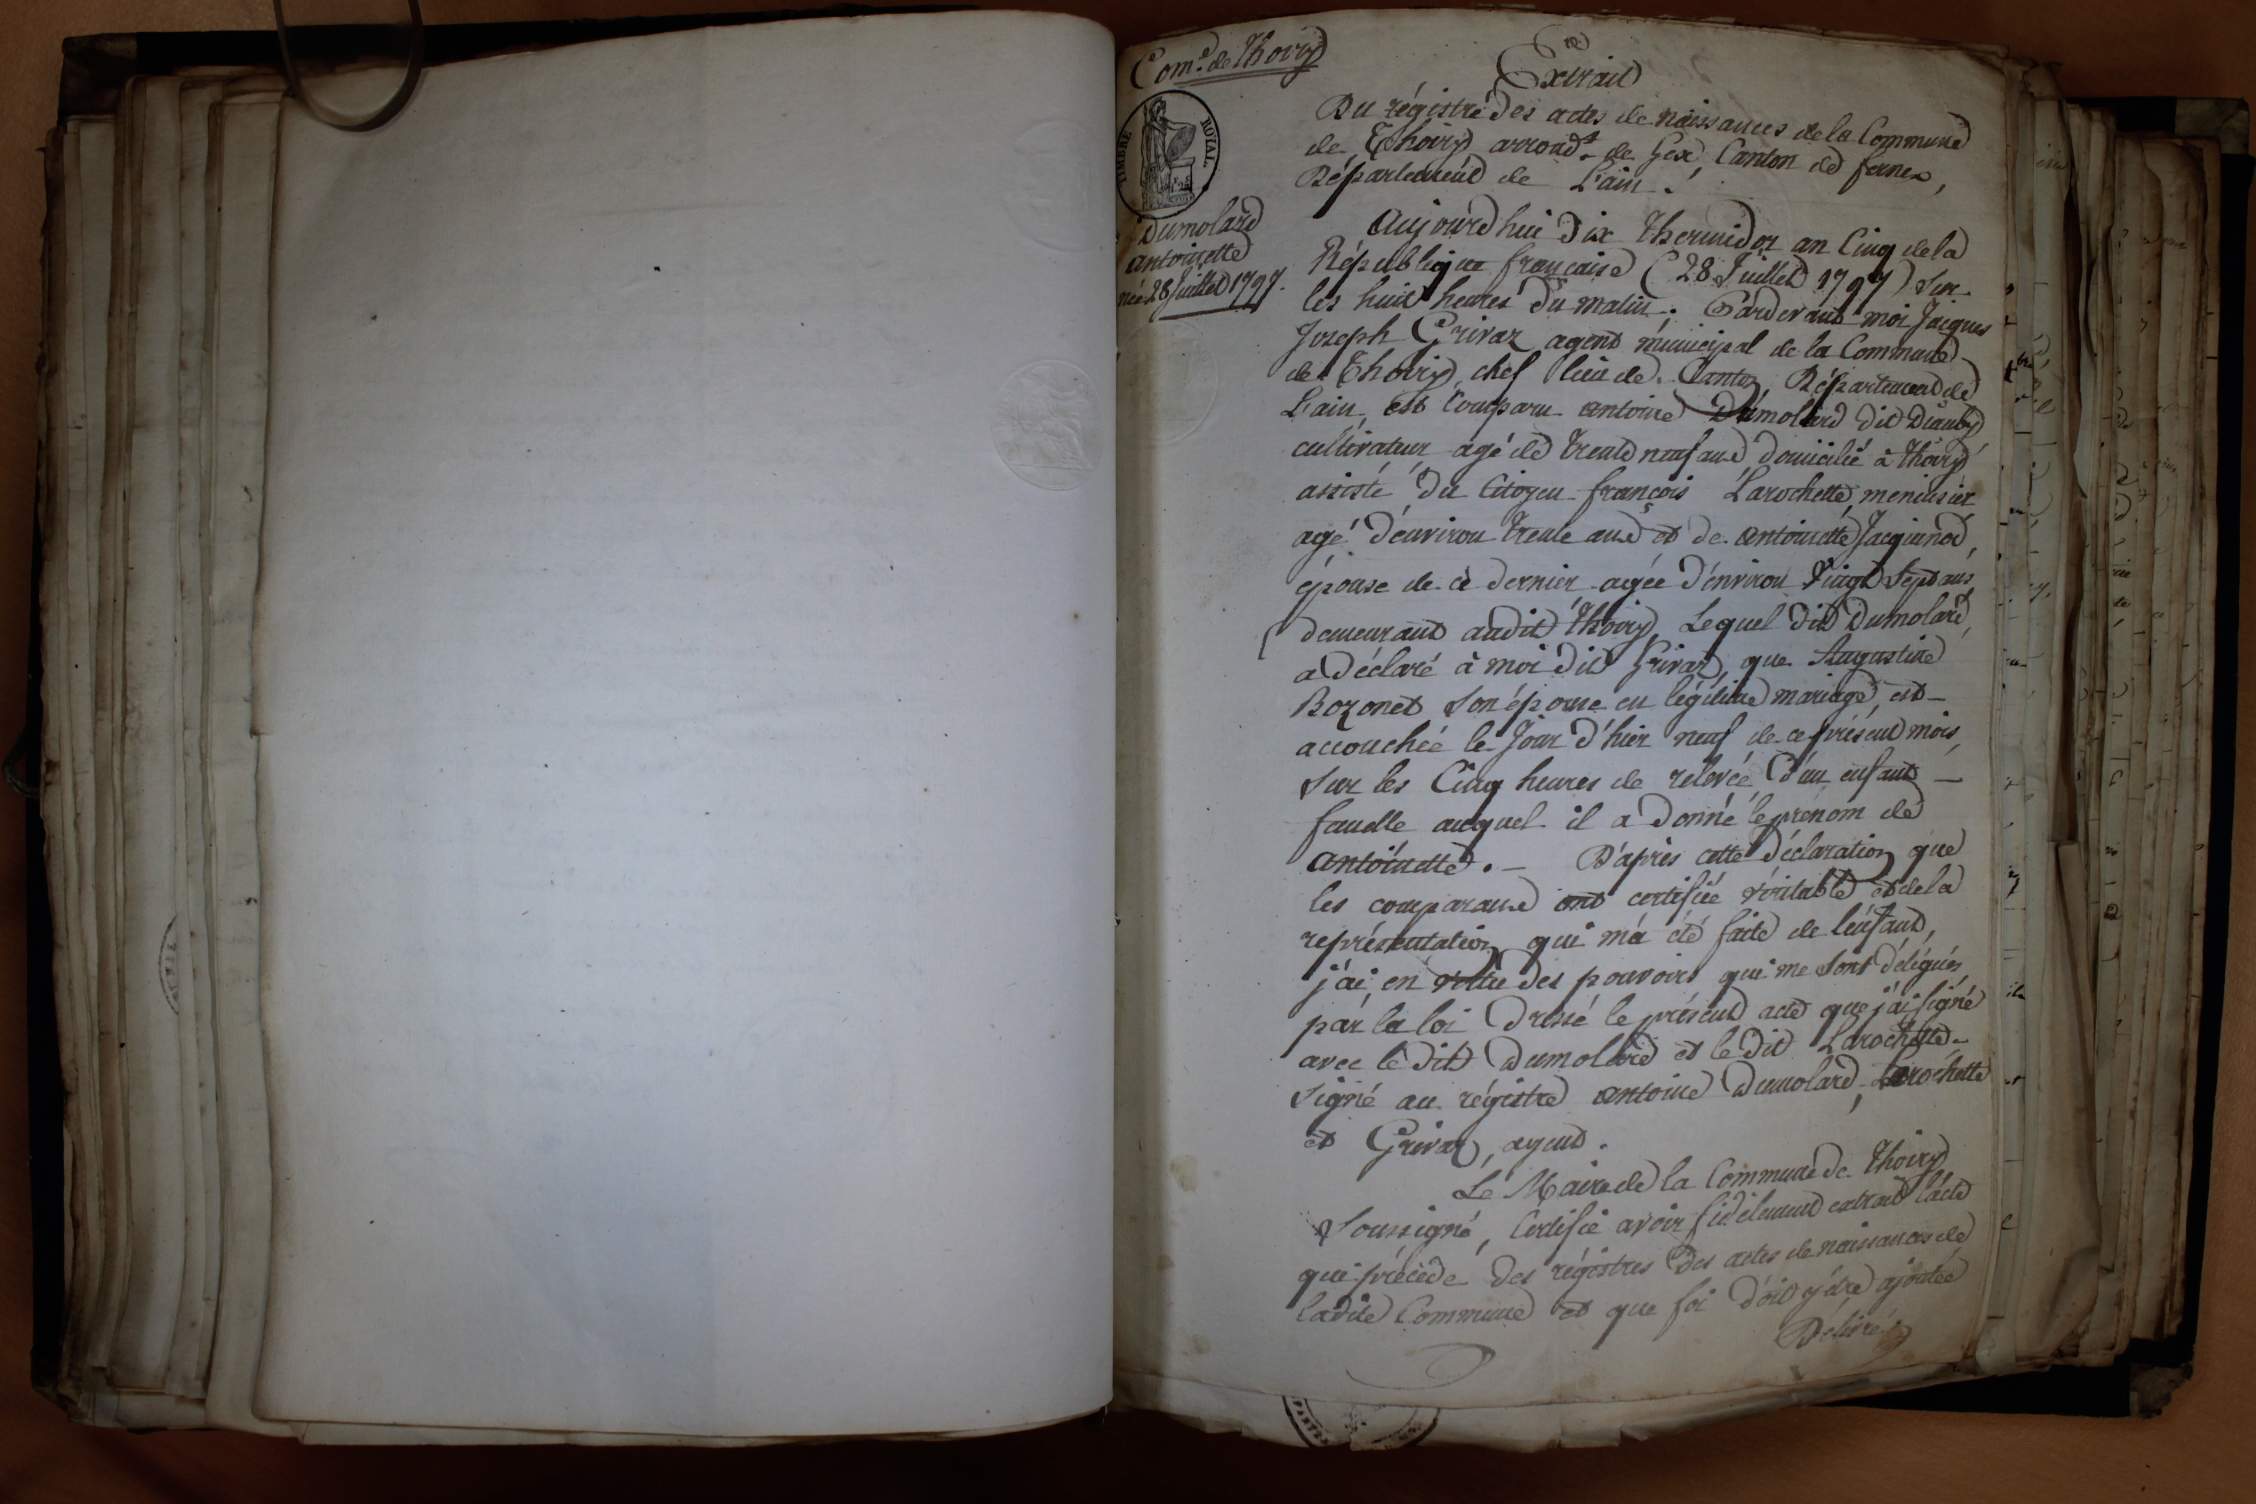 Com.e de Thoiry
TIMBRE ROYAL
Dumolard
antoinette
née 28 Juillet 1797.
Extrait
Du régistre des actes de naissances de la Commune
de Thoiry arrond.t de Gex, Canton de fernex,
Département de L'ain.
Aujourd'hui dix thermidor an Cinq de la
République francaise (28 Juillet 1797) sur
les huit heures du matin; Pardevant moi Jacques
Joseph Grivaz agent municipal de la Commune
de Thoiry, chef lieu de Canton Département de
L'ain, est Comparu antoine Dumolard dit
cultivateur agé de trente neuf ans domicilié à Thoiry
assisté du Citoyen françois Larochette, menuisier
agé d'environ trente ans et de antoinette Jacquinod,
épouse de ce dernier agée d'environ vingt sept ans
demeurant audit Thoiry, Lequel dit Dumolard,
a déclaré à moi dit Grivaz, que Augustine
Bozonet son épouse en légitime mariage, est
accouchée le Jour d'hier neuf de ce présent mois,
sur les Cinq heures de rélevée d'un enfant
femelle auquel il a donné le prénom de
antoinette. — D'après cette déclaration que
les comparans ont certifiée véritable et de la
représentation qui m'a été faite de l'enfant,
j'ai en vertu des pouvoirs qui me sont délégués
par la loi dressé le présent acte que j'ai signé
avec le dit Dumolard et le dit Larochette
signé au régistre antoine Dumolard, Larochette
et Grivaz, agent.
Le Maire de la Commune de Thoiry
Soussigné, Certifie avoir fidèlement extrait l'acte
qui précède des régistres des actes de naissances de
ladite Commune et que foi doit y être ajoutée
Délivré